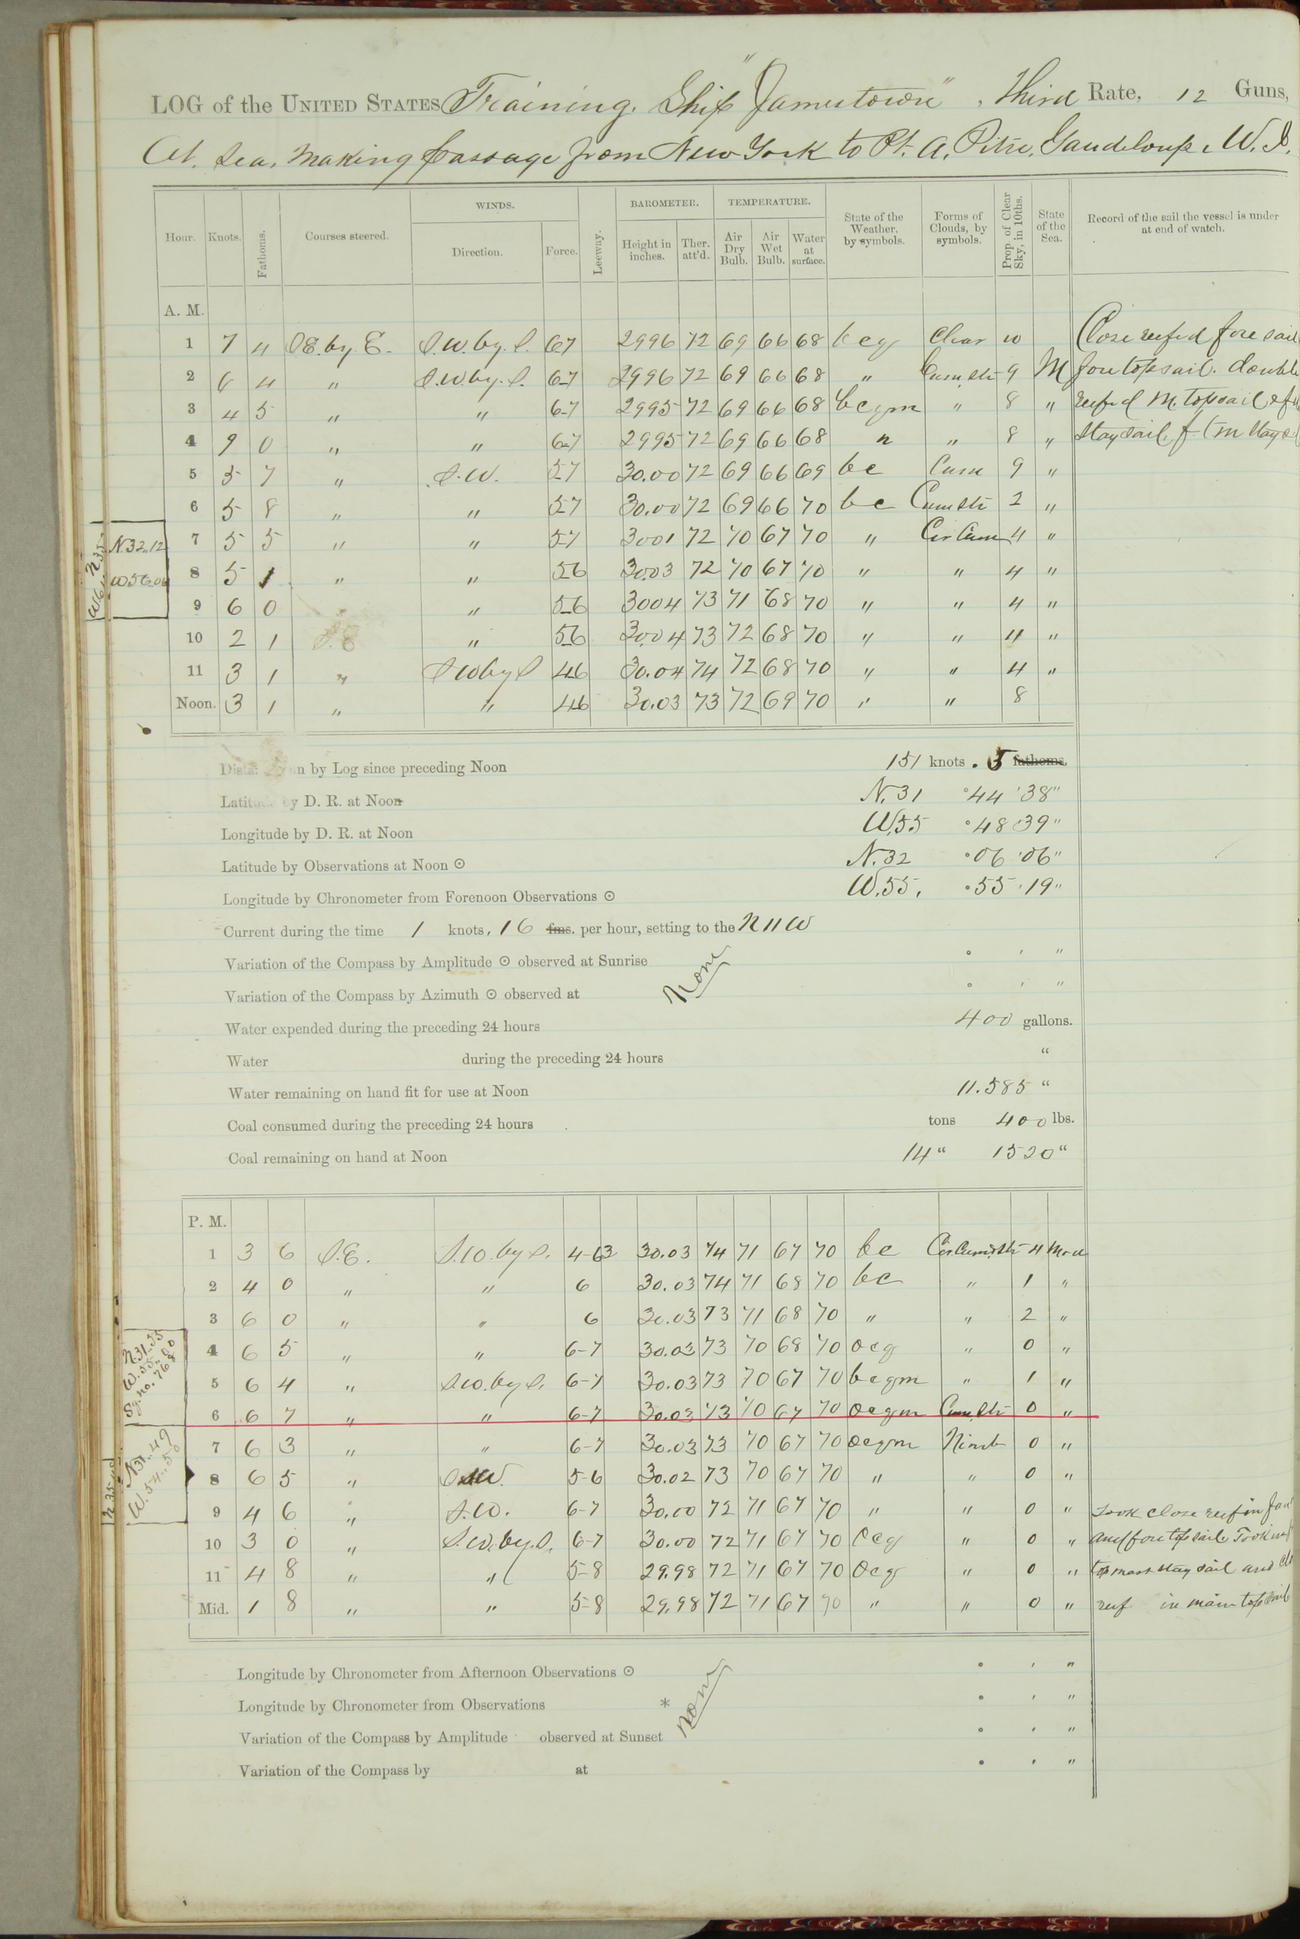 LOG of the UNITED STATES Training Ship "Jamestown", Third Rate, 12 Guns,
At Sea, Making passage from New York to Pt. A. Pitre, Gaudeloupe, W. I.
Hour. Knots. Fathoms. Courses steered. WINDS. Direction. Force. Leeway. BAROMETER. Height in inches. Ther. att'd. TEMPERATURE. Air Dry Bulb. Air Wet Bulb. Water at surface. State of the Weather, by symbols. Forms of Clouds, by symbols. Prop. of Clear Sky, in 10ths. State of the Sea. Record of the sail the vessel is under at end of watch.
A. M.
1 7 4 SE. by E. S.W. by. S. 6-7 2996 72 69 66 68 bcq Clear 10 Close reefed fore sail
2 6 4 " S.W. by. S. 6-7 2996 72 69 66 68 " Cum Str 9 M fore topsail. double
3 4 5 " " 6-7 2995 72 69 66 68 bcqm " 8 " reefed M. topsail
4 9 0 " " 6-7 2995 72 69 66 68 " " 8 " staysail,
5 5 7 " S.W. 5-7 30.00 72 69 66 69 bc Cum 9 "
6 5 8 " " 5-7 30.00 72 69 66 70 bc Cum Str 2 "
7 5 5 " " 5-7 3001 72 70 67 70 " Cir Cum 4 "
8 5 1 " " 5-6 30.03 72 70 67 70 " " 4 "
9 6 0 " 5-6 3004 73 71 68 70 " " 4 "
10 2 1 S.E " 5-6 30.04 73 72 68 70 " " 4 "
11 3 1 " S W by S 4-6 30.04 74 72 68 70 " " 4 "
Noon. 3 1 " " 4-6 30.03 73 72 69 70 " " 8
N 32.12
W 56.06
n by Log since preceding Noon 151 knots . 5 fathoms.
Latitude by D. R. at Noon N. 31 ° 44 ' 38 "
Longitude by D. R. at Noon W. 55 ° 48 ' 39 "
Latitude by Observations at Noon ⊙ N. 32 ° 06 ' 06 "
Longitude by Chronometer from Forenoon Observations ⊙ W. 55. ° 55 ' 19 "
Current during the time 1 knots, 16 fms. per hour, setting to the N N W
Variation of the Compass by Amplitude ⊙ observed at Sunrise ° ' "
None
Variation of the Compass by Azimuth ⊙ observed at ° ' "
Water expended during the preceding 24 hours 400 gallons.
Water during the preceding 24 hours "
Water remaining on hand fit for use at Noon 11.585 "
Coal consumed during the preceding 24 hours tons 400 lbs.
Coal remaining on hand at Noon 14 " 1520 "
P. M.
1 3 6 S.E. S.W. by S. 4-6 3 30.03 74 71 67 70 bc Cir Cum Str 4 Mod
2 4 0 " " 6 30.03 74 71 68 70 bc " 1 "
3 6 0 " " 6 30.03 73 71 68 70 " " 2 "
4 6 5 " " 6-7 30.03 73 70 68 70 ocq " 0 "
5 6 4 " S.W. by S. 6-7 30.03 73 70 67 70 bcqm " 1 "
6 6 7 " " 6-7 30.03 73 70 67 70 ocqm Cum. Str 0 "
7 6 3 " " 6-7 30.03 73 70 67 70 ocqm Nimb 0 "
8 6 5 " S.W. 5-6 30.02 73 70 67 70 " " 0 "
9 4 6 " S.W. 6-7 30.00 72 71 67 70 " " 0 " Took close reef in
10 3 0 " S.W. by. S. 6-7 30.00 72 71 67 70 ocq " 0 " and fore topsail. Took in
11 4 8 " " 5-8 29.98 72 71 67 70 ocq " 0 " top mast stay sail and
Mid. 1 8 " " 5-8 29.98 72 71 67 70 " " 0 " reef in main topsail
N 31.49
W. 54.50
Longitude by Chronometer from Afternoon Observations ⊙ ° ' "
Longitude by Chronometer from Observations * ° ' "
None
Variation of the Compass by Amplitude observed at Sunset ° ' "
Variation of the Compass by at ° ' "